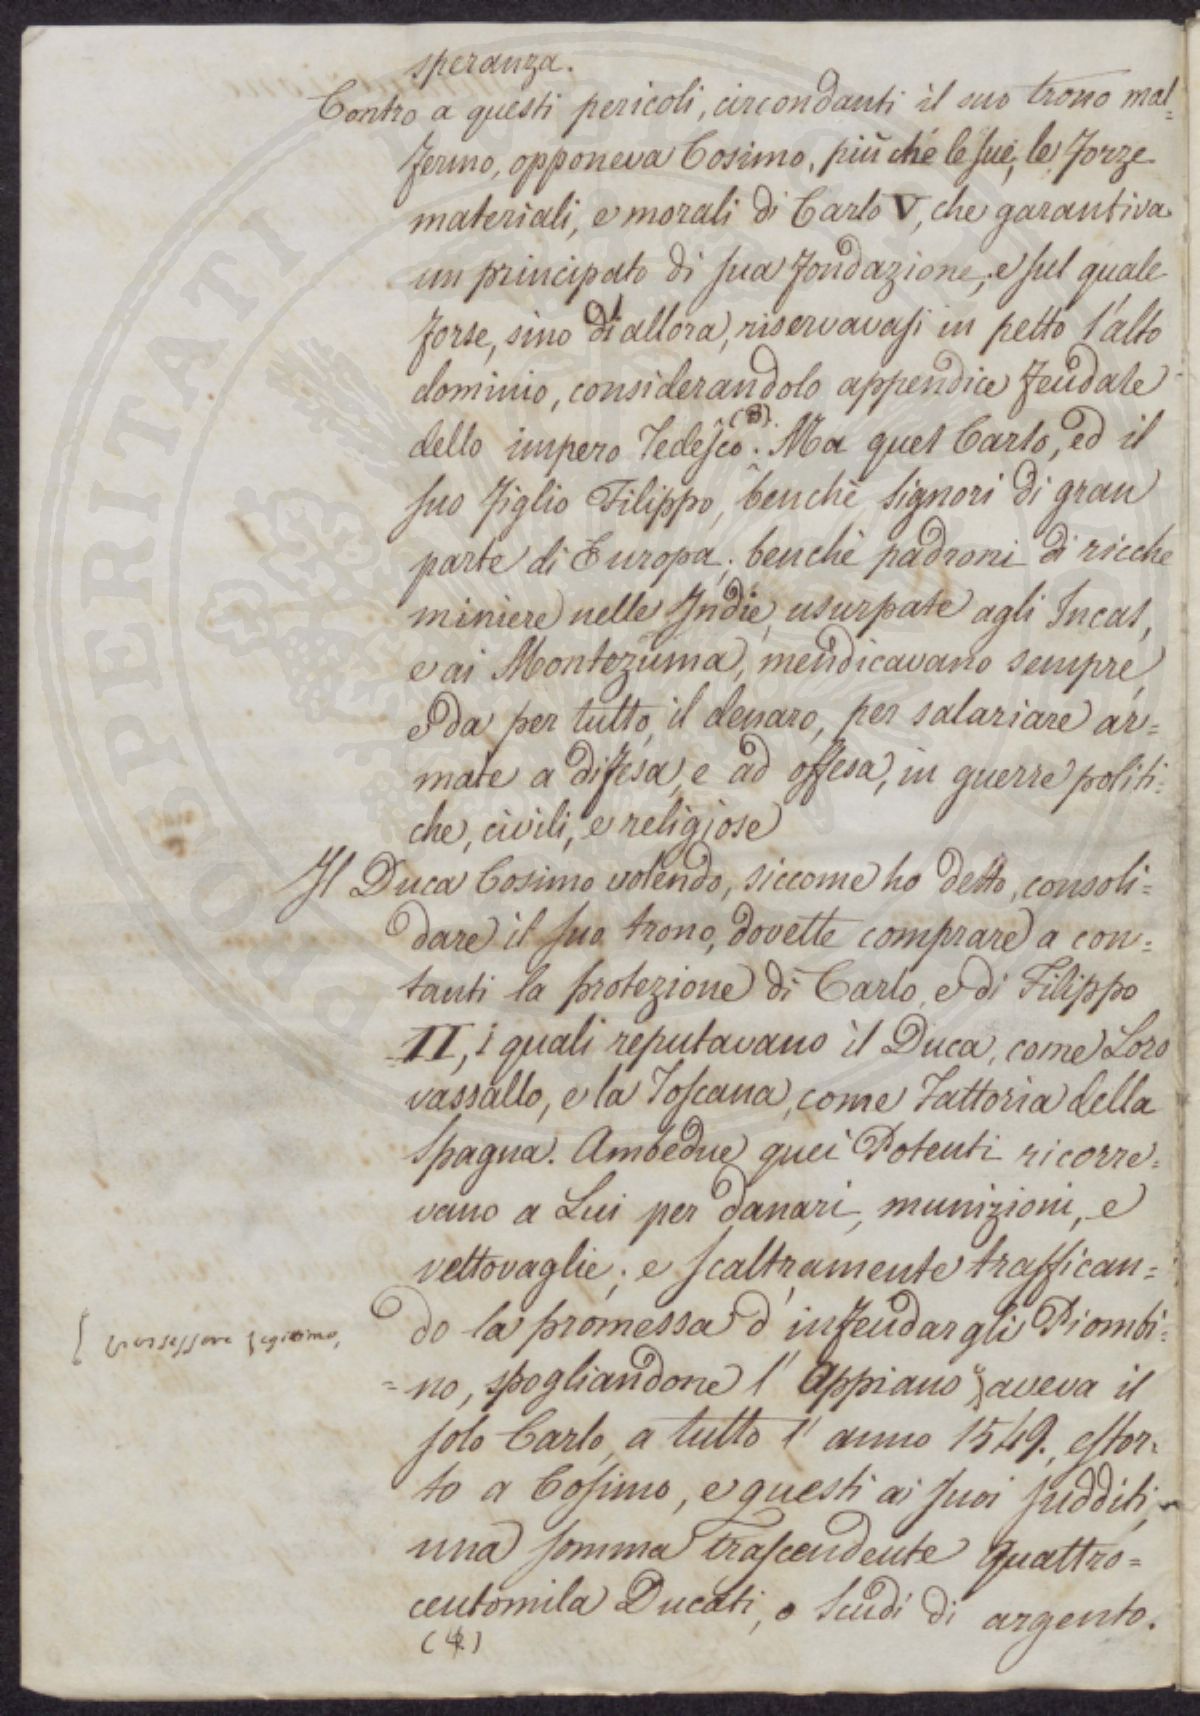 speranza.
Contro a questi pericoli, circondanti il suo trono mal=
fermo, opponeva Cosimo, più che le sue, le forze
materiali, e morali di Carlo V, che garantiva
un principato di sua fondazione, e sul quale
forse, sino d'allora, riservavasi in petto l'alto
dominio, considerandolo appendice feudale
dello impero Tedesco (3). Ma quel Carlo, ed il
suo figlio Filippo, benchè signori di gran
parte di Europa; benchè padroni di ricche
miniere nelle Indie, usurpate agli Incas,
e ai Montezuma, mendicavano sempre,
e da per tutto, il denaro, per salariare ar=
mate a difesa, e ad offesa, in guerre politi=
che, civili, e religiose
Il Duca Cosimo volendo, siccome ho detto, consoli=
dare il suo trono, dovette comprare a con=
tanti la protezione di Carlo, e di Filippo
II, i quali reputavano il Duca, come Loro
vassallo, e la Toscana, come Fattoria della
Spagna. Ambedue quei Potenti ricorre=
vano a Lui per danari, munizioni, e
vettovaglie; e scaltramente traffican=
do la promessa d'infeudargli Piombi=
{ possessore legittimo,
=no, spogliandone l'Appiano { aveva il
solo Carlo, a tutto l'anno 1549., estor=
to a Cosimo, e questi ai suoi sudditi,
una somma trascendente quattro=
centomila Ducati, o Scudi di argento.
(4)
PROSPERITATI